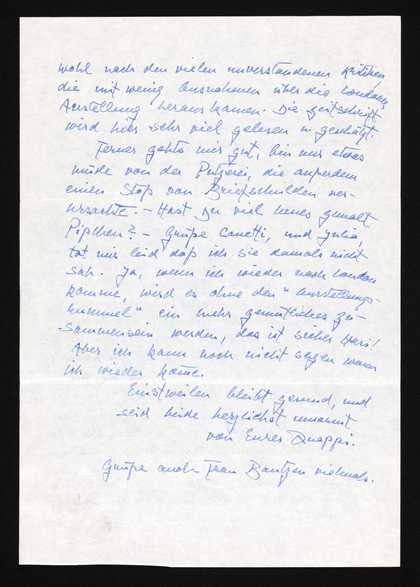 wohl nach den vielen unverstandenen Kritiken
die mit wenig Ausnahmen über die Londoner
Ausstellung herauskamen. Die Zeitschrift
wird hier sehr viel gelesen u. geschätzt.
Ferner gehts mir gut, bin nur etwas
müde von der Putzerei, die ausserdem
einen Stop von Briefschulden ver-
ursachte. – Hast Du viel neues gemalt
Piplchen? – Grüsse Canetti, und Julia,
tat mir leid daß ich sie damals nicht
sah. Ja, wenn ich wieder nach London
komme, wird es ohne den "Ausstellungs-
Rummel" ein mehr gemütliches zu-
sammensein werden, das ist sicher
Aber ich kann noch nicht sagen wann
ich wieder komme.
Einstweilen bleibt gesund, und
seid beide herzlichst umarmt
von Eurer Quappi.
Grüsse auch Frau Bantzen vielmals.